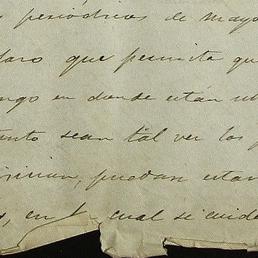 periódicos de mayo
faro que permita qu
ngo en donde están ub
anto sean tal ver los p
, puedan estar
s, en la cual se cuida